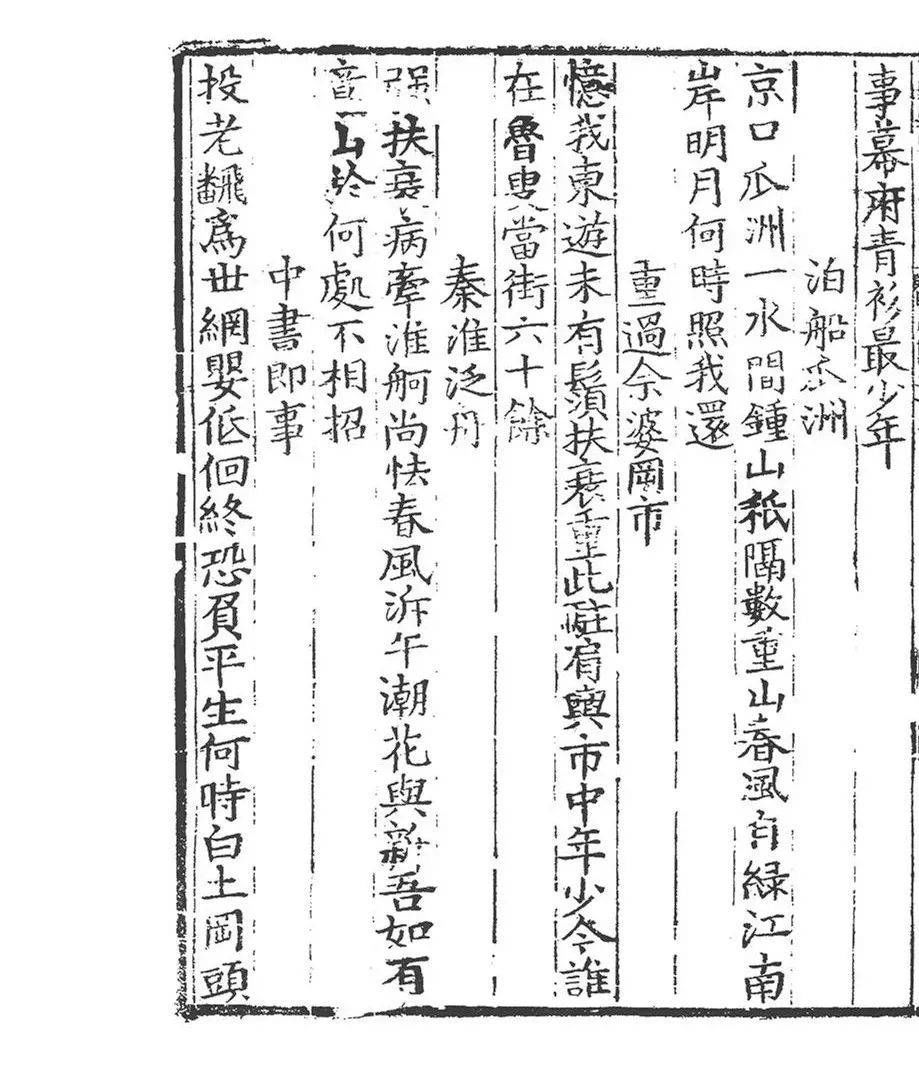 事幕府青衫最少年
泊船瓜洲
京口瓜洲一水間鍾山秖隔數重山春風自綠江南
岸明月何時照我還
重過余婆岡市
憶我東遊未有鬚扶衰重此駐肩輿市中年少今誰
在魯叟當街六十餘
秦淮泛舟
强扶衰病牽淮舸尚怯春風泝午潮花與新吾如有
意山於何處不相招
中書即事
投老飜爲世網嬰低佪終恐負平生何時白土岡頭